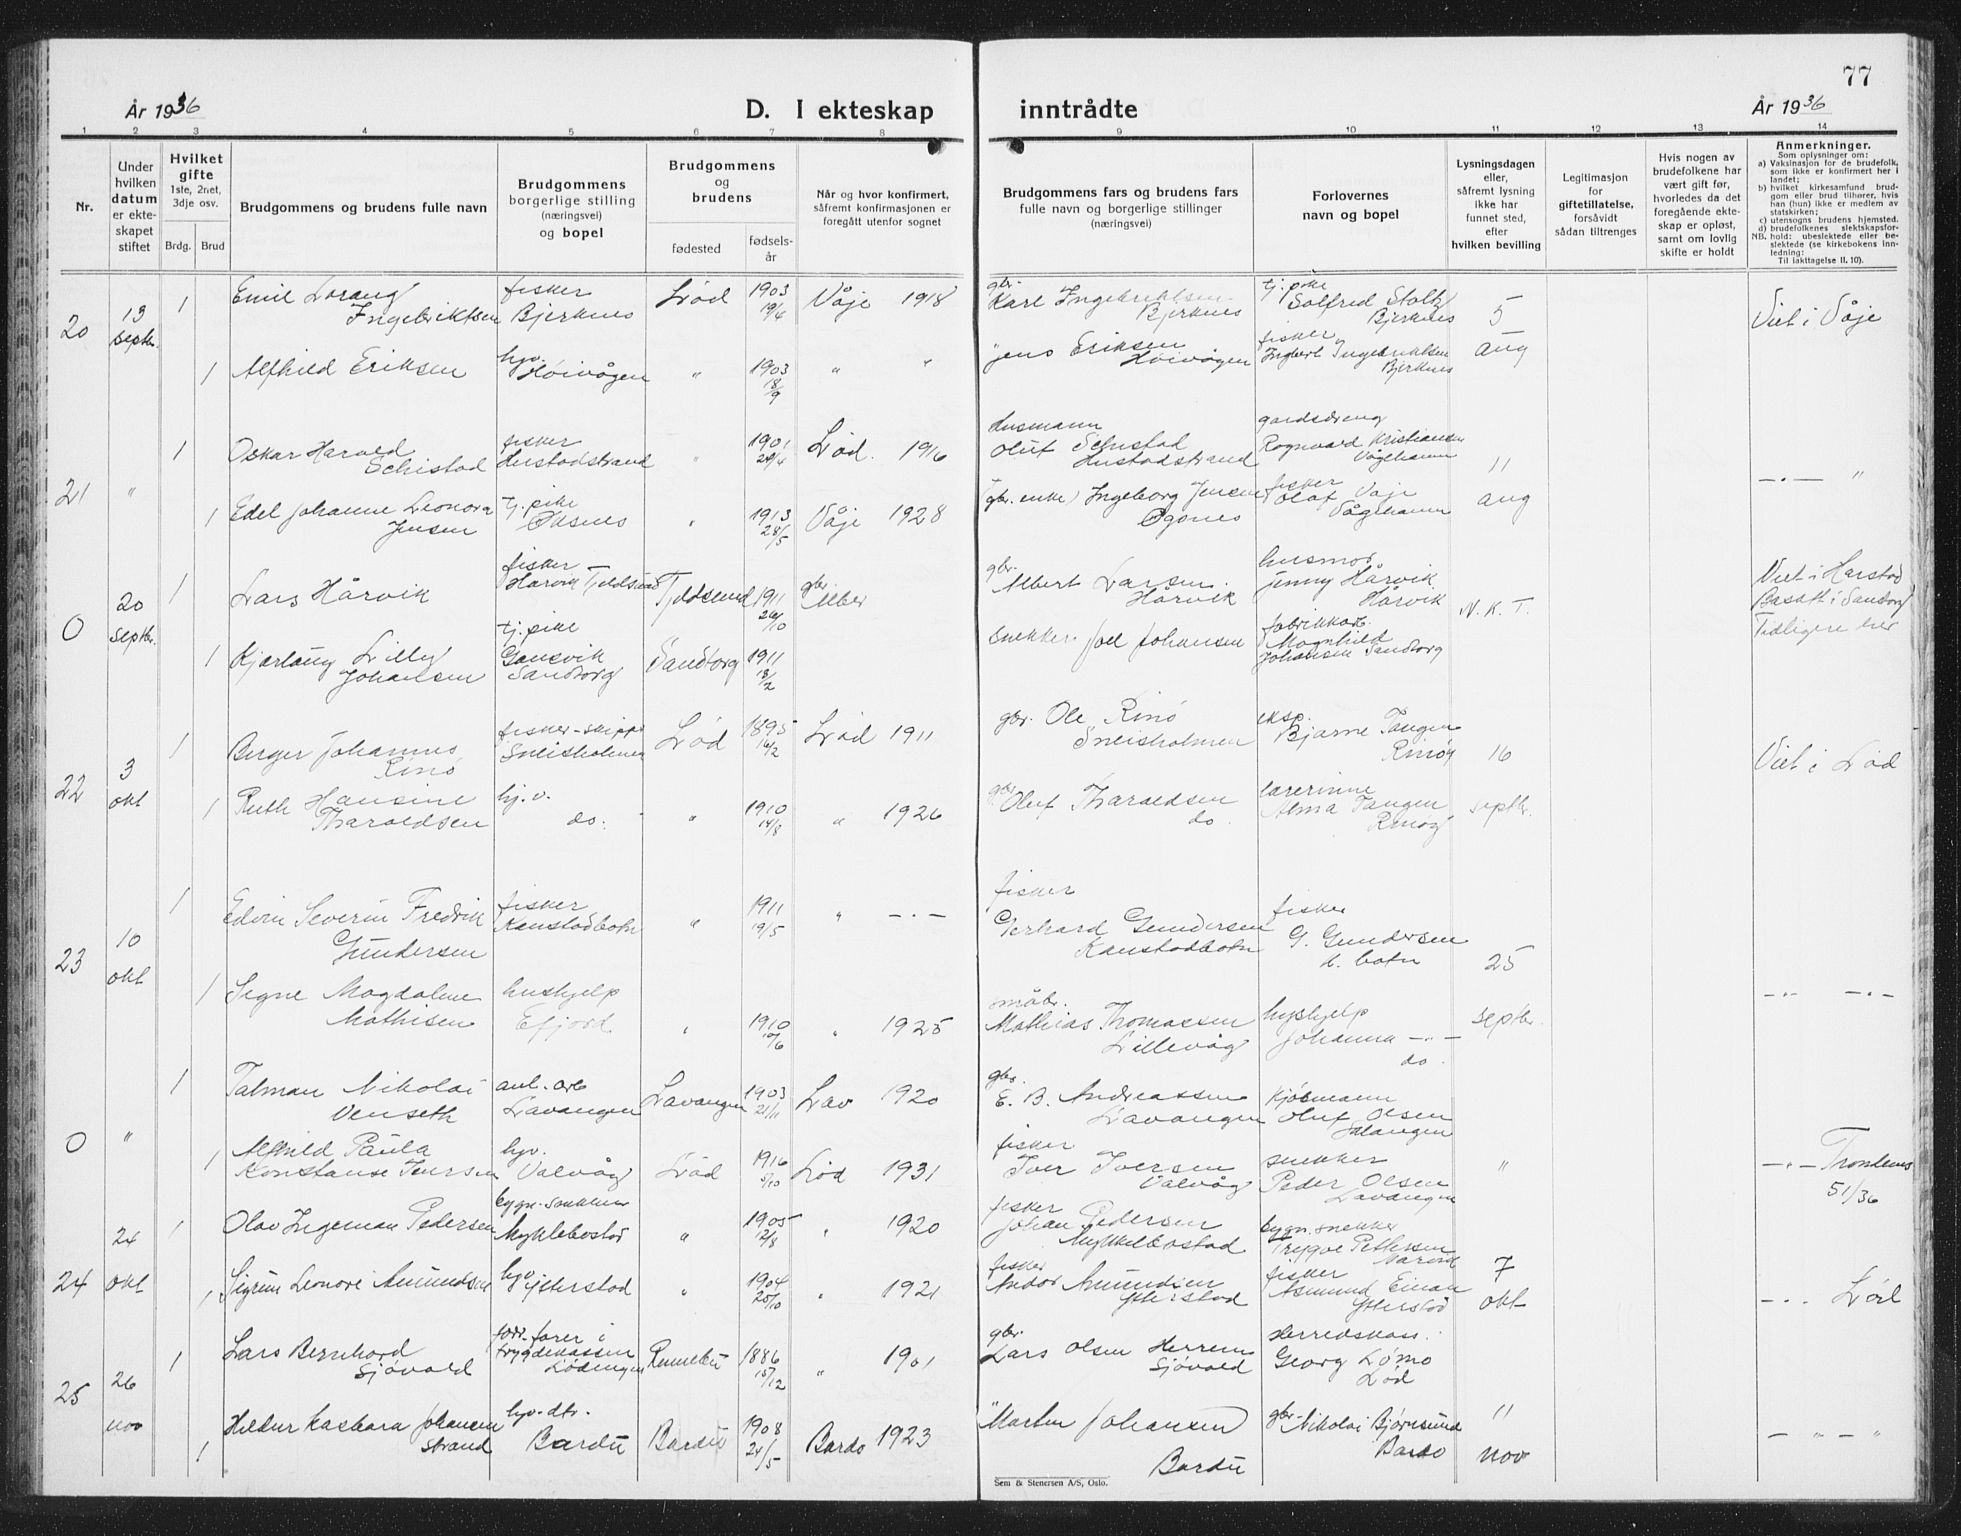 77
År 1936
D. I ekteskap inntrådte
År 1936
1 2 3 4 5 6 7 8 9 10 11 12 13 14
Nr.
Under hvilken datum er ekte-skapet stiftet
Hvilket gifte 1ste, 2net, 3dje osv.
Brdg. Brud
Brudgommens og brudens fulle navn
Brudgommens borgerlige stilling (næringsvei) og bopel
Brudgommens og brudens
fødested
fødsels-år
Når og hvor konfirmert, såfremt konfirmasjonen er foregått utenfor sognet
Brudgommens fars og brudens fars fulle navn og borgerlige stillinger (næringsvei)
Forlovernes navn og bopel
Lysningsdagen eller, såfremt lysning ikke har funnet sted, efter hvilken bevilling
Legitimasjon for giftetillatelse, forsåvidt sådan tiltrenges
Hvis nogen av brudefolkene har vært gift før, hvorledes da det foregående ekte-skap er opløst, samt om lovlig skifte er holdt
Anmerkninger.
Som oplysninger om:
a) Vaksinasjon for de brudefolk, som ikke er konfirmert her i landet;
b) hvilket kirkesamfund brud-gom eller brud tilhører, hvis han (hun) ikke er medlem av statskirken;
c) utensogns brudens hjemsted.
d) brudefolkenes slektskapsfor-hold: ubeslektede eller be-slektede (se kirkebokens inn-ledning:
NB.
Til Iakttagelse II. 10).
20 13 septbr. 1 Emil Lorang Ingebriktsen fisker Bjerknes Lød 1903 19/4 Våje 1918 gbr. Karl Ingebriktsen Bjerknes tj. pike Solfrid Stoltz Bjerknes 5 aug Viet i Våje
1 Alfhild Eriksen hjv. Höivågen " 1903 18/9 " " " Jens Eriksen Höivågen fisker Ingbert Ingebriktsen Bjerknes
21 " 1 Oskar Harald Schistad fisker Hustadstrand " 1901 29/4 Lød. 1916 Husmann Oluf Schistad Hustadstrand gårdsdreng Rognvald Kristiansen Vågehamn 11 aug —"— "
1 Edel Johanne Leonora Jensen tj. pike Öksnes " 1913 28/5 Våje 1928 (gbr. enke) Ingeborg Jensen Ögsnes fisker Olaf Våje Vågehamn
0 20 septbr. 1 Lars Hårvik fisker Hårvik Tjeldsund Tjeldsund 1911 26/10 gbr. Albert Larsen Hårvik husmor Jenny Hårvik Hårvik N. K. T. Viet i Harstad Bosatt i Sandtorg Tidligere her
1 Kjærlaug Lilly Johansen tj. pike Gausvik Sandtorg Sandtorg 1911 18/2 snekker. Joel Johansen fabrikkarb. Magnhild Johansen Sandtorg
22 3 okt 1 Birger Johannes Rinö fisker-skipper Sneisholmen Lød 1895 16/2 Lød 1911 gbr. Ole Rinö Sneisholmen eksp. Bjarne Tangen Rinöy 16 septbr. Viet i Lød
1 Ruth Hansine Tharaldsen hj. v. do. " 1910 14/8 " 1926 gbr Oluf Tharaldsen do. lærerinne Alma Tangen Rinöy
23 10 okt 1 Edvin Severin Fredrik Gundersen fisker Kanstadbotn " 1911 19/5 " —"— fisker Gerhard Gundersen Kanstadbotn fisker G. Gundersen k. botn 25 septbr. —"— —"—
1 Signe Magdalene Mathisen hushjelp Efjord " 1910 10/6 " 1925 småbr. Mathias Thomassen Lillevåg hushjelp Johanna —"— do.
0 " 1 Talman Nikolai Venseth anl. arb Lavangen Lavangen 1903 21/11 Lav 1920 gbr. E. B. Andreassen Lavangen Kjøbmann Oluf Olsen Salangen " —"— Trondenes 51/36
1 Alfhild Paula Konstanse Iversen hjv. Valvåg Lød 1916 5/10 Lød 1931 fisker Iver Iversen Valvåg snekker Peder Olsen Lavangen
24 24 okt 1 Olav Ingeman Pedersen bygn. snekker Myklebostad " 1905 12/8 " 1920 fisker Johan Pedersen Myklebostad bygn. snekker Trygve Pettersen Narvik 7 okt —"— Lød
1 Sigrun Leonore Amundsen hjv. Ytterstad " 1904 25/10 " 1921 fisker Andor Amundsen Ytterstad fisker Asmund Einan Ytterstad
25 26 nov 1 Lars Bernhard Sjövold forr. fører i trygdekassen Lödingen Rennebu 1886 15/12 " 1901 gbr. Lars Olsen Herrem Sjövold Herredskass. Georg Lömo Lød 11 nov — " — "
1 Hildur Kasbara Johansen Strand hjv. dtr. Bardu Bardu 1908 24/5 Bardo 1923 " Martin Johansen Bardu gbr. Nikolai Bjørnsund Bardo
Sem & Stenersen A/S, Oslo.